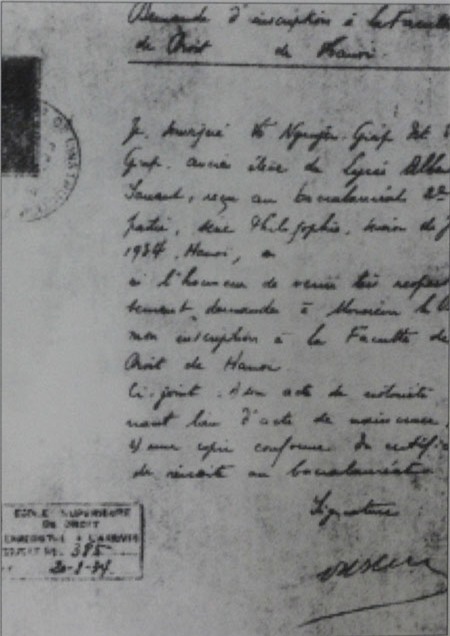 Demande d'inscription à la Faculté
de Droit de Hanoi
Je soussigné Võ Nguyên Giáp dit
Giáp ancien élève du Lycée Alber
Sarraut, reçu au baccalauréat 2e
partie, série Philosophie, session de
1934, Hanoi,
ai l'honneur de venir très respec
tement demander à Monsieur le
mon inscription à la Faculté de
Droit de Hanoi
Ci-joint 1) un acte de notoriété
nant lieu d'acte de naissance
2) une copie conforme du certific
de réussite au baccalauréat
Signature
ECOLE SUPERIEURE
DE DROIT
ENREGISTRE A L'ARRIVEE
385